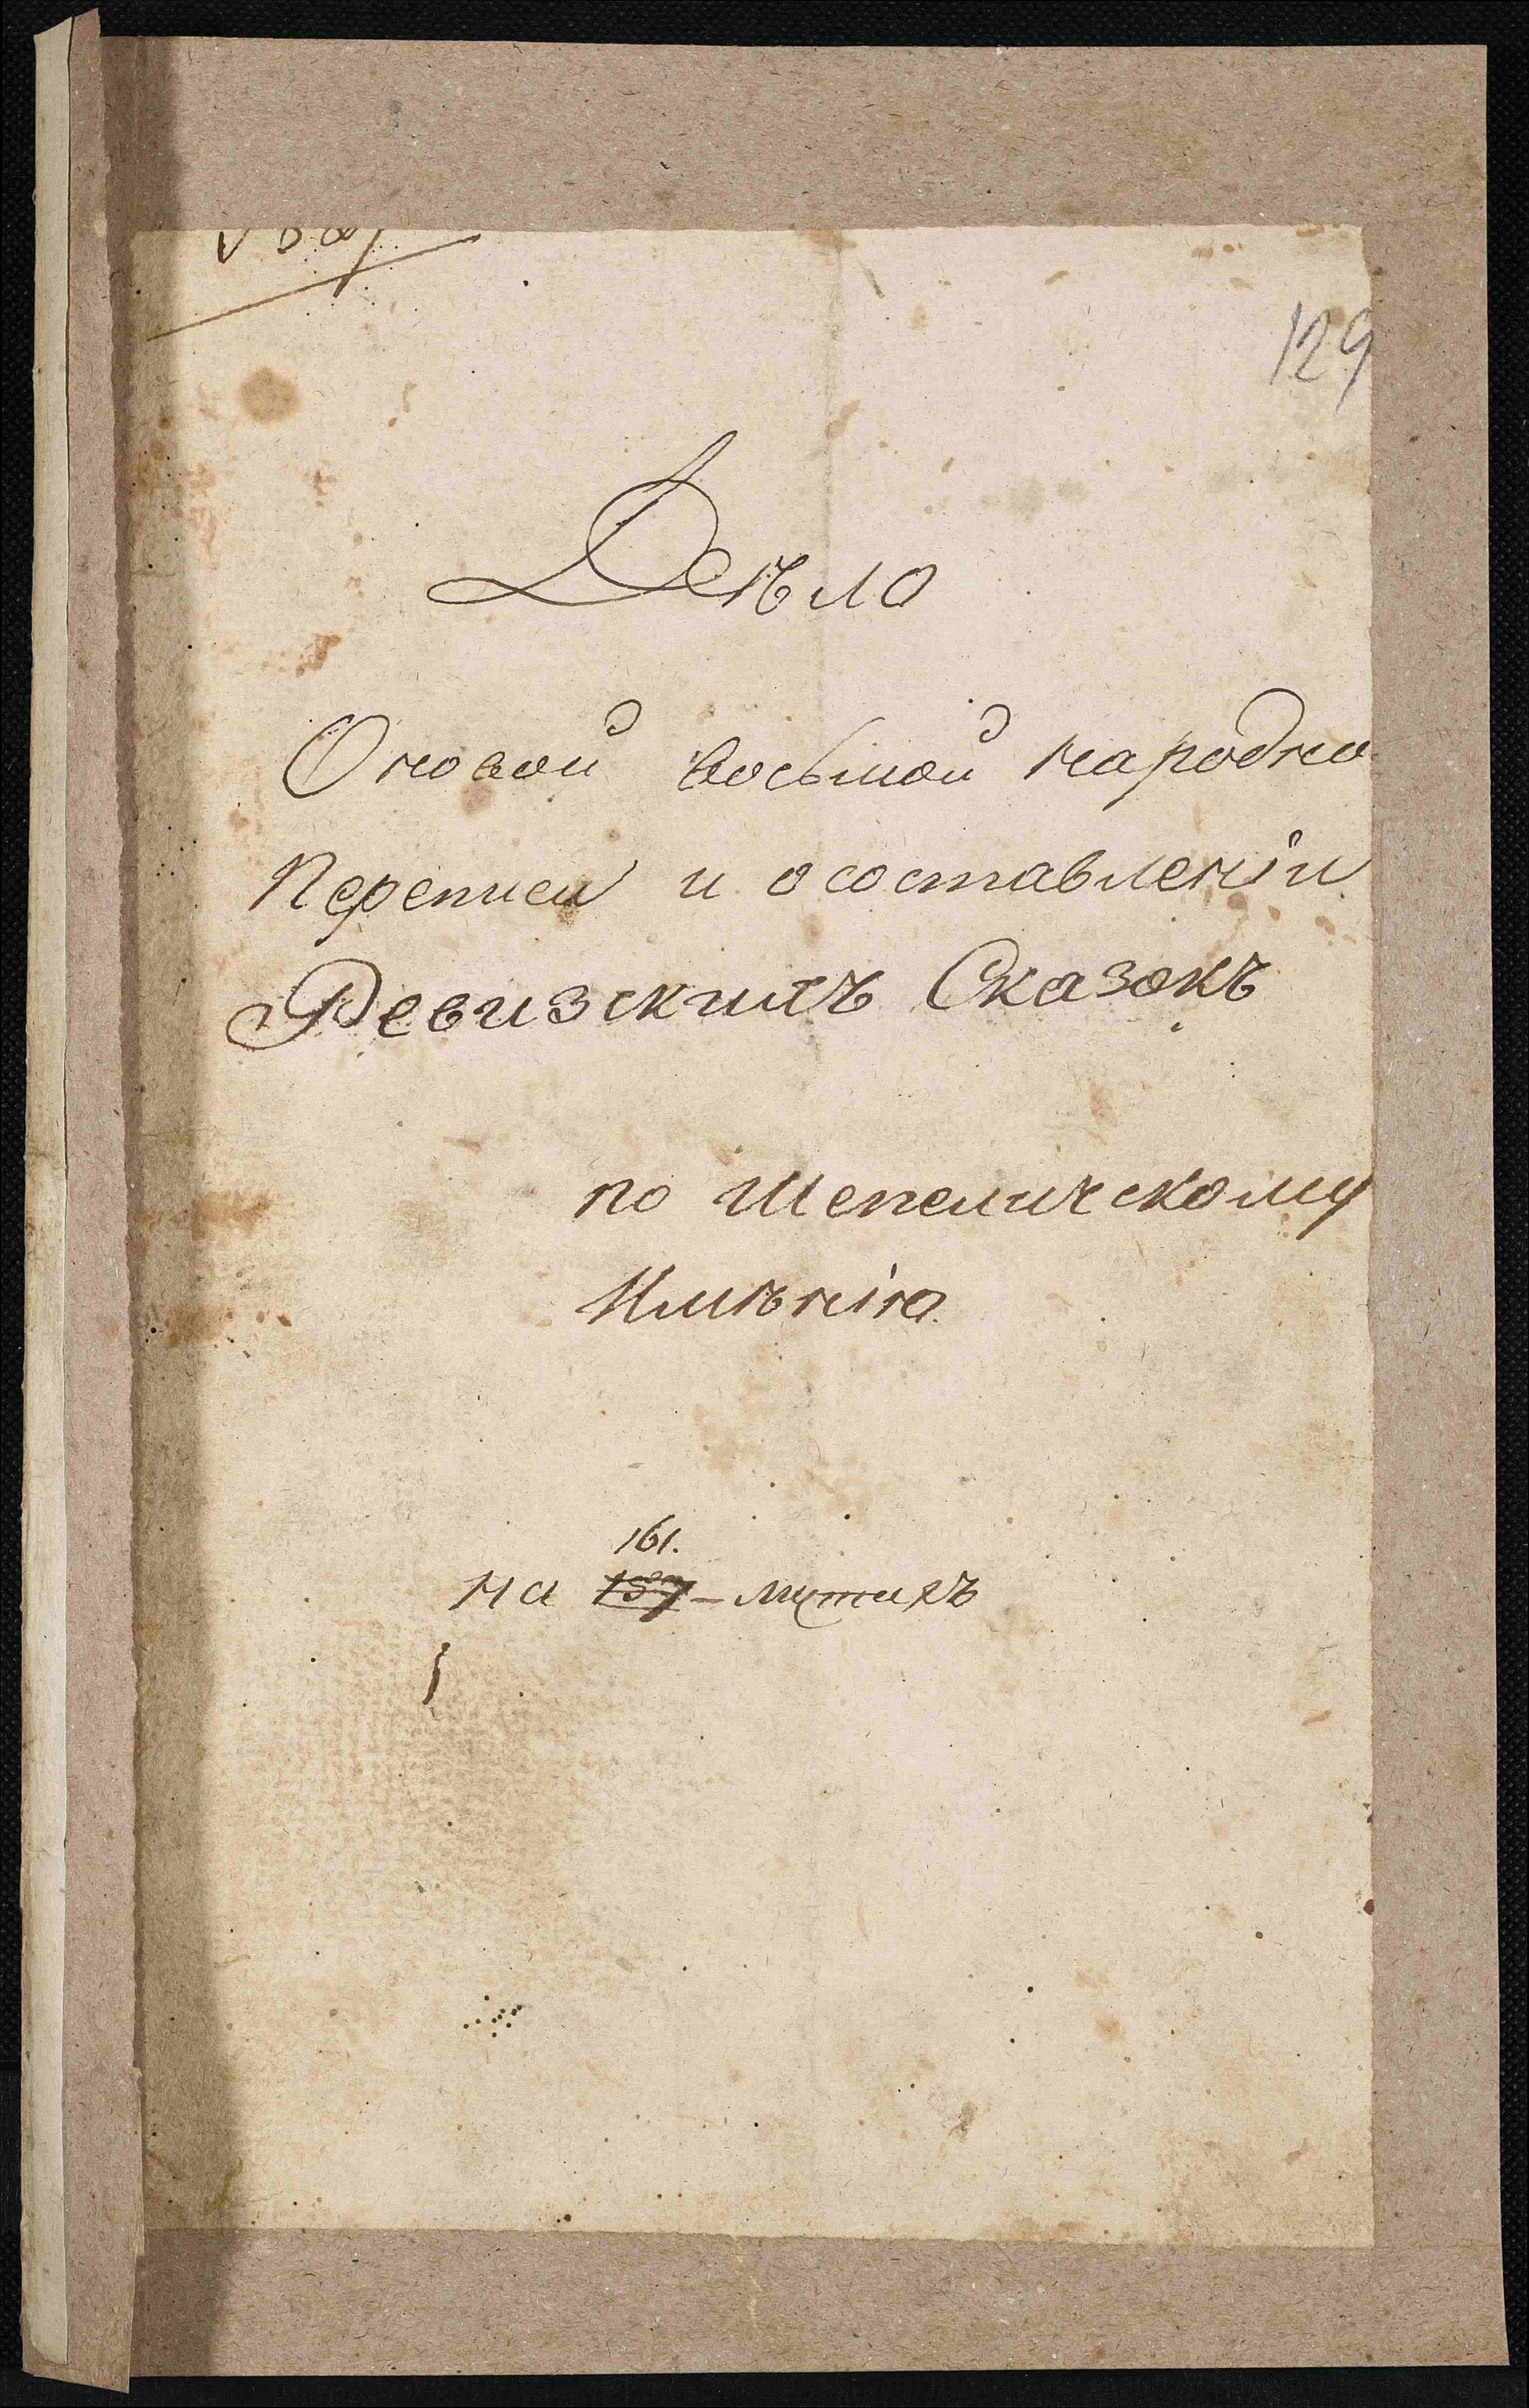 129
Дѣло
О новой восьмой народно
Переписи и о составленіи
Ревизскихъ Сказокъ
по Шепеличскому
Имѣнію.
161.
на 157 - листахъ